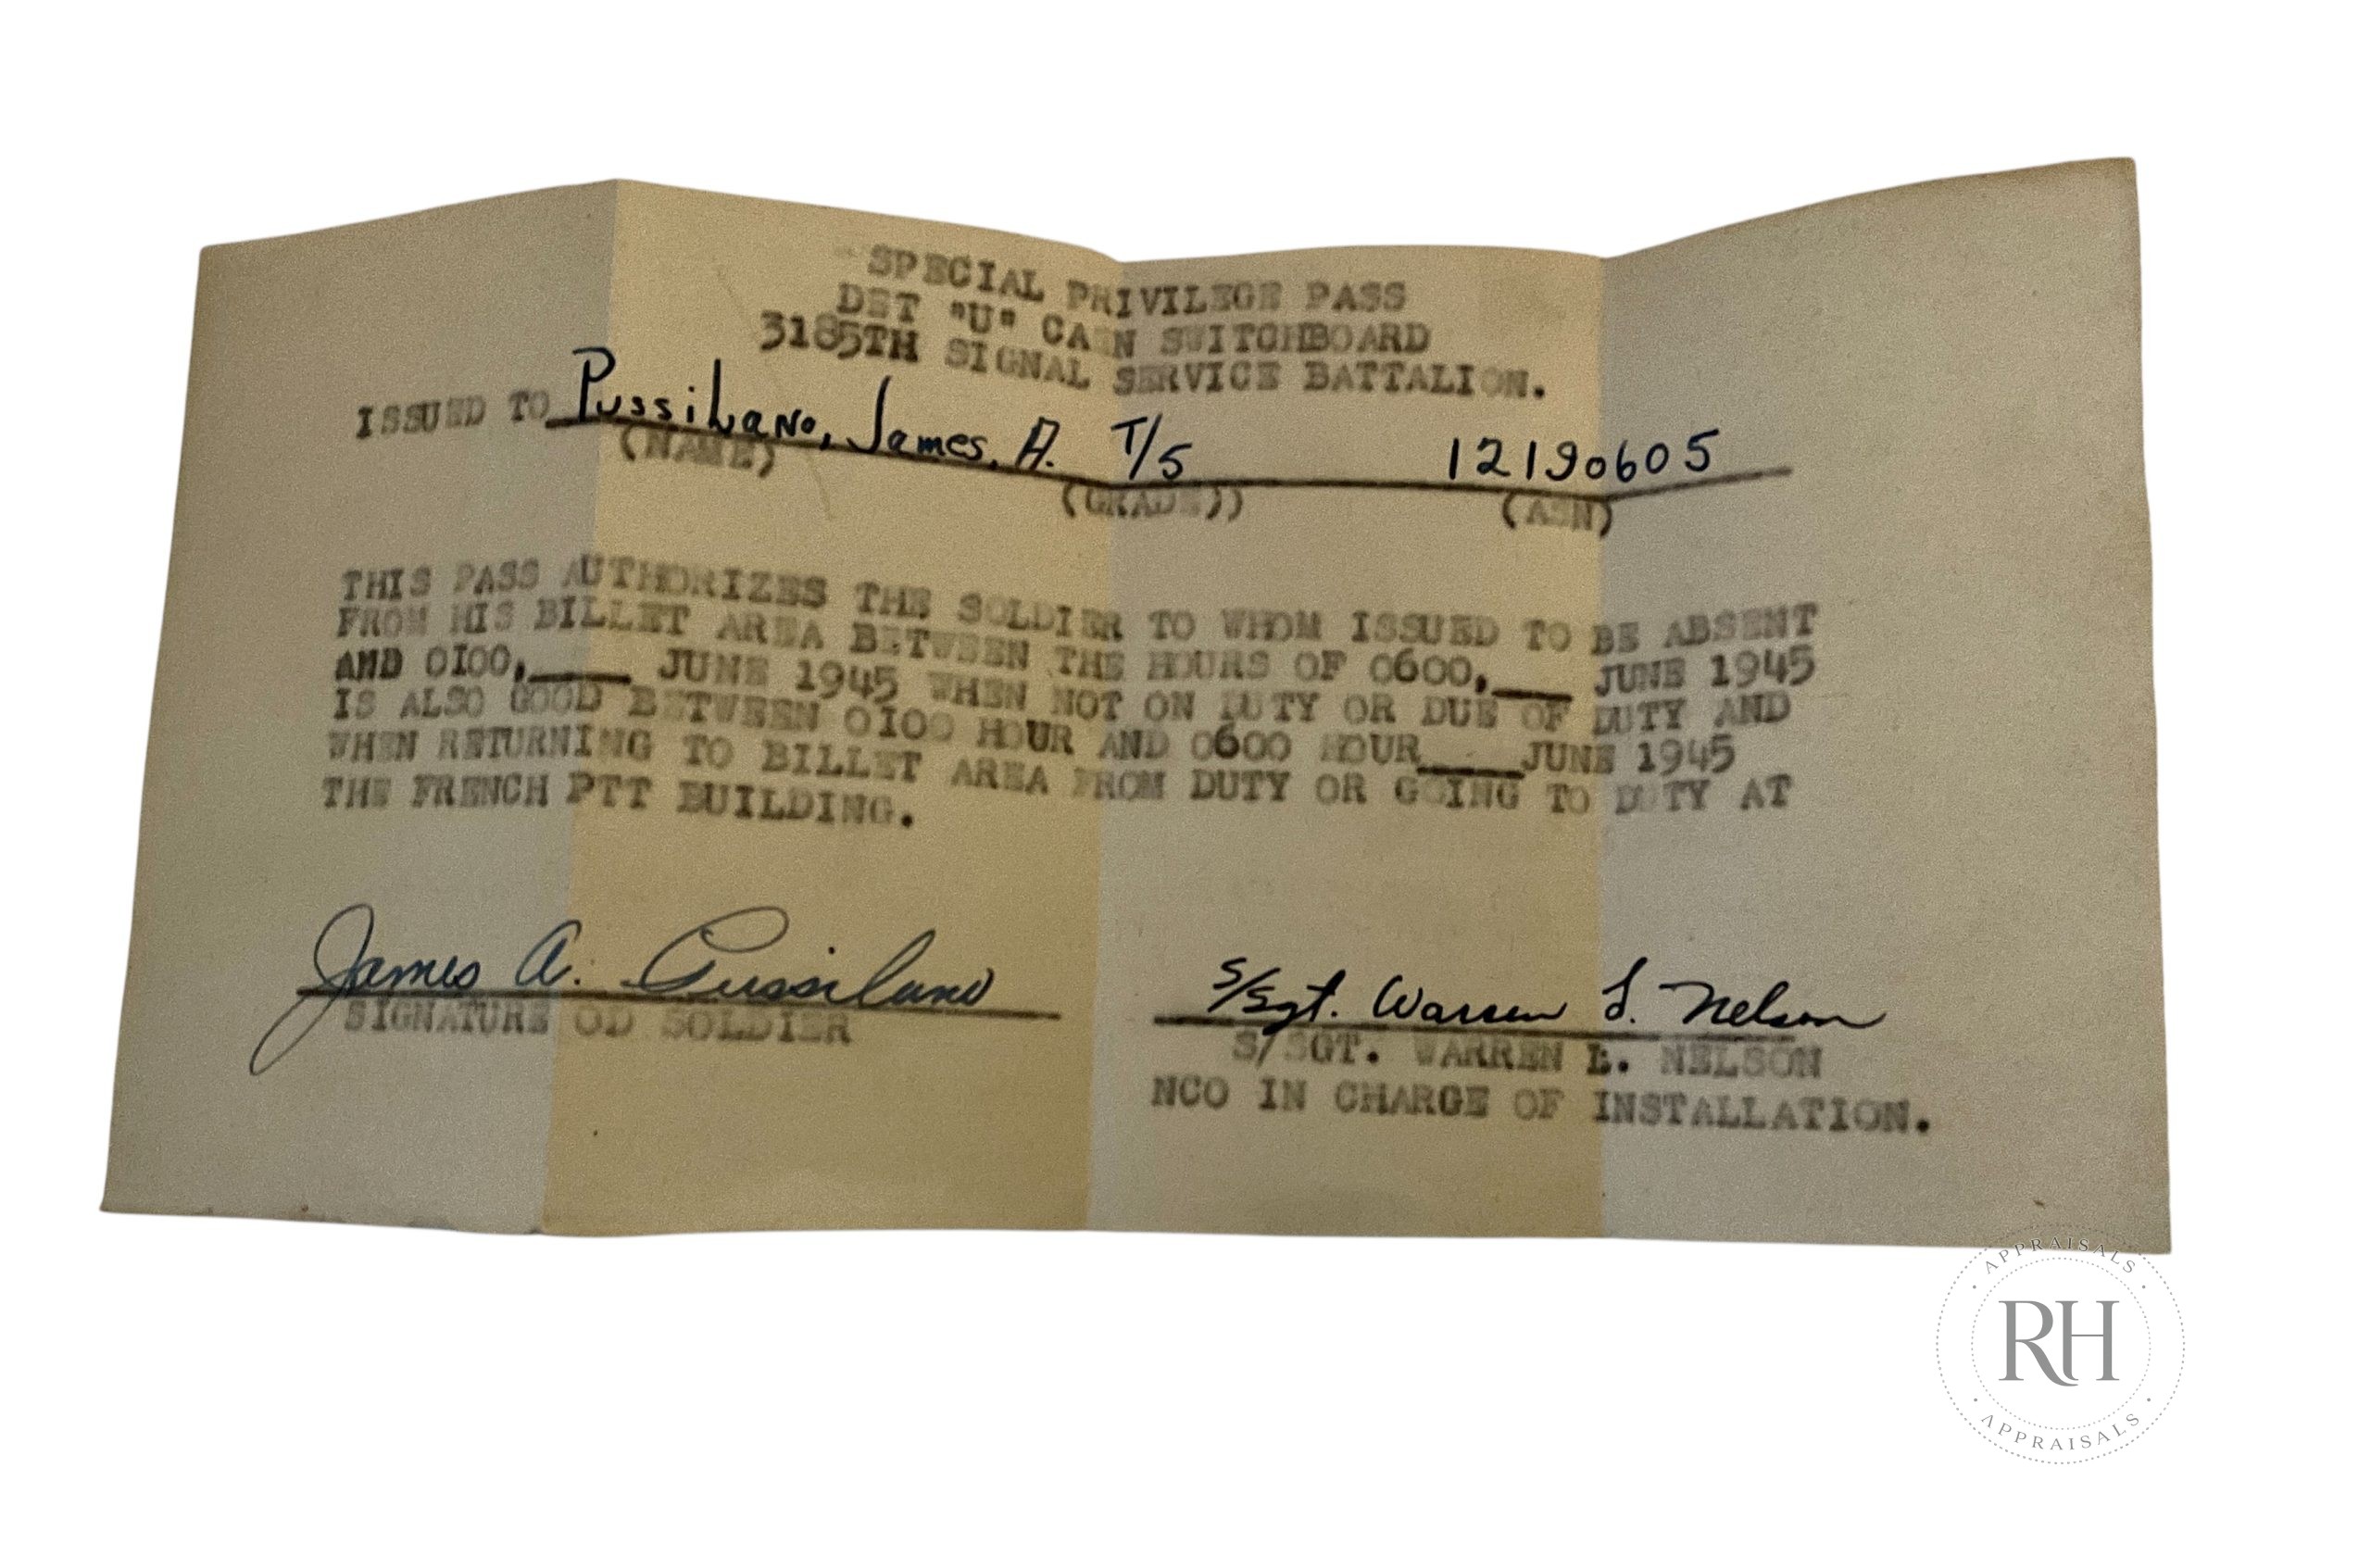 SPECIAL PRIVILEGE PASS
DET "U" CAEN SWITCHBOARD
3185TH SIGNAL SERVICE BATTALION.
ISSUED TO Pussilano, James, A. T/5 12190605
(NAME) (GRADE)) (ASN)
THIS PASS AUTHORIZES THE SOLDIER TO WHOM ISSUED TO BE ABSENT
FROM HIS BILLET AREA BETWEEN THE HOURS OF 0600,____ JUNE 1945
AND 0I00,____ JUNE 1945 WHEN NOT ON DUTY OR DUE OF DUTY AND
IS ALSO GOOD BETWEEN 0I00 HOUR AND 0600 HOUR____JUNE 1945
WHEN RETURNING TO BILLET AREA FROM DUTY OR GOING TO DUTY AT
THE FRENCH PTT BUILDING.
James A. Pussilano S/Sgt. Warren L. Nelson
SIGNATURE OD SOLDIER S/SGT. WARREN L. NELSON
NCO IN CHARGE OF INSTALLATION.
APPRAISALS
RH
APPRAISALS